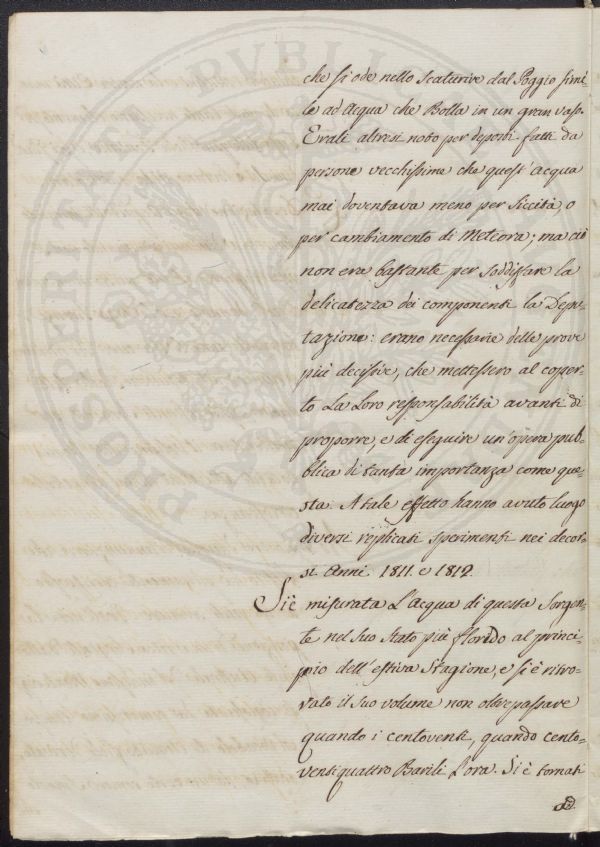 che si ode nello Scaturire dal Poggio simi
le ad Acqua che Bolla in un gran vaso.
Erali altresì noto per deposti fatti da
persone vecchissime che quest'acqua
mai doventava meno per Siccità, o
per cambiamento di Meteora; ma ciò
non era bastante per soddisfare la
delicatezza dei componenti la Depu-
tazione: erano necessarie delle prove
più decisive, che mettessero al coper-
to La Loro responsabilità avanti di
proporre, e di eseguire un'opera pub-
blica di tanta importanza come que-
sta. A tale effetto hanno avuto luogo
diversi replicati sperimenti nei decor-
si Anni 1811. e 1812.
Si è misurata L'Acqua di questa Sorgen-
te nel suo stato più florido al princi-
pio dell'estiva Stagione, e si è ritro-
vato il suo volume non oltrepassare
quando i centoventi, quando cento-
ventiquattro Barili L'ora. Si è tornati
ad.
PROSPERITATI PVBLI